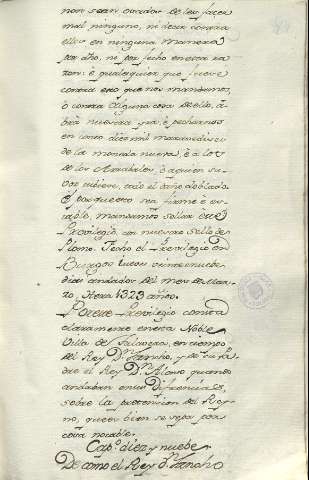 non sean osados de les facer
mal ninguno, ni decir contra
ellos en ninguna manera
por año, ni por fecho en esta ra
zon: e qualquier que fuese
contra esto que nos mandamos,
o contra alguna cosa de ello, a
bra nuestra yra, e pecharnos
en coto diez mil maravedises
de la moneda nueva, è a los
de los Arrabales, ò aquien su
voz tubiese, todo el daño doblado.
E porque esto sea firme è es
table, mandamos sellar este
Privilegio con nuestro sello de
Plomo. Fecho el Privilegio en
Burgos Lunes veinte nuebe
dias andados del mes de Mar
zo, Hera 1323 años.
Por este Privilegio consta
claramente en esta Noble
Villa de Salamanca, en tiempo
del Rey Dn. Sancho, y de su Pa
dre el Rey Dn. Alonso quando
andaban en sus Diferencias,
sobre la pretension del Rey
no, que es bien se sepa por
cosa notable.
Cap.o diez y nuebe
De como el Rey Dn. Sancho